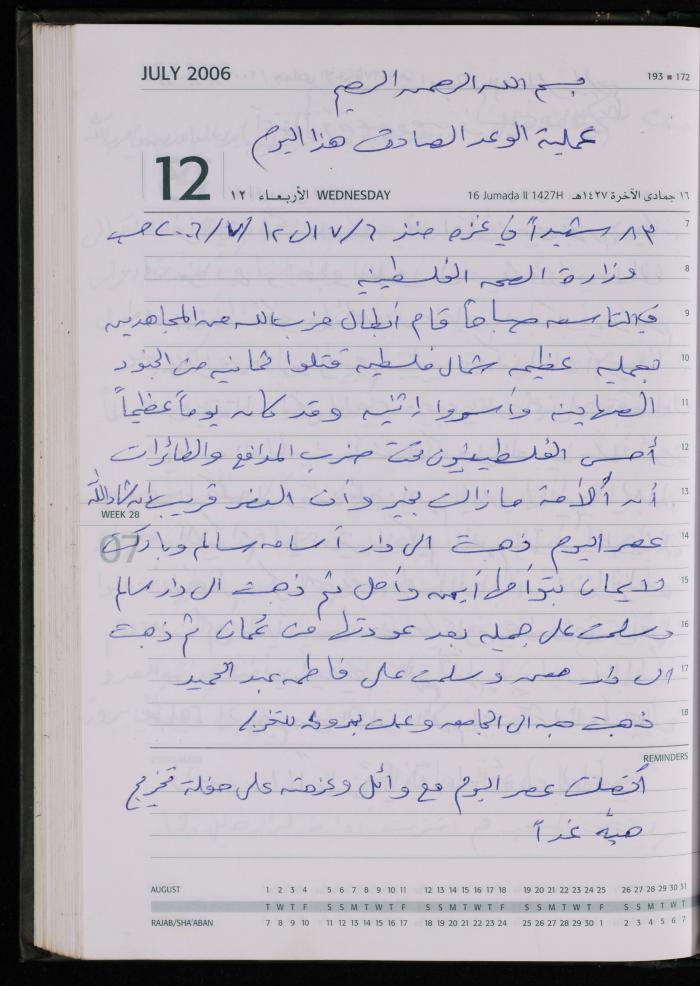 JULY 2006
193 ■ 172
بسم الله الرحمن الرحيم
عملية الوعد الصادق هذا اليوم
12
١٢ الأربعاء WEDNESDAY
16 Jumada II 1427H ١٦ جمادى الآخرة ١٤٢٧هـ
7 ٨٣ شهيداً في غزه منذ ٧/٦ ال ١٢ /٧/ ٢٠٠٦ حسب
8 وزارة الصحه الفلسطينيه
9 في التاسعه صباحاً قام أبطال حزب الله من المجاهدين
10 بعمليه عظيمه شمال فلسطين قتلوا ثمانيه من الجنود
11 الصهاينه وأسروا اثنين وقد كان يوماً عظيماً
12 أحس الفلسطينيون تحت ضرب المدافع والطائرات
13 أن الأمة مازالت بخير وأن النصر قريب إن شاء الله
WEEK 28
07
14 عصر اليوم ذهبت الى دار أسامه سالم وباركت
15 لايمان بتوأمها أيمن وأمل ثم ذهبت ال دار سالم
16 وسلمت على جميله بعد عودتها من عمان ثم ذهبت
17 ال دار وسلمت على فاطمه عبد الحميد
18 ذهبت هبه ال الجامعه وعملت بروفه للتخرج
REMINDERS
عصر اليوم مع وائل وعزمته على حفلة تخريج
هبه غداً
AUGUST 1 2 3 4 5 6 7 8 9 10 11 12 13 14 15 16 17 18 19 20 21 22 23 24 25 26 27 28 29 30 31
T W T F S S M T W T F S S M T W T F S S M T W T F S S M T W T
RAJAB/SHA'ABAN 7 8 9 10 11 12 13 14 15 16 17 18 19 20 21 22 23 24 25 26 27 28 29 30 1 2 3 4 5 6 7